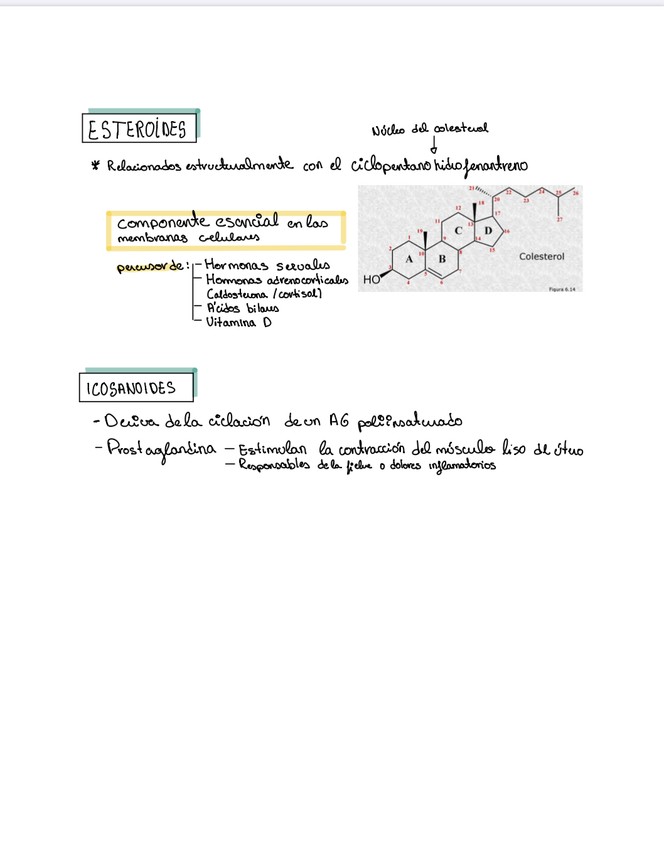 ESTEROÍDES
Núcleo del colesterol
* Relacionados estructuralmente con el ciclopentano hidrofenantreno
componente esencial en las
membranas celulares
percusor de: - Hormonas sexuales
- Hormonas adrenocorticales
Caldosterona / cortisol)
- Ácidos biliares
- Vitamina D
21 22 24 25 26
20 23
18 17 27
12
11 13 16
19 C D
1 9 14 15
2 10 8
A B
3 5 7
HO 4 6
Colesterol
Figura 6.14
ICOSANOIDES
- Deriva de la ciclación de un AG poliinsaturado
- Prostaglandina - Estimulan la contracción del músculo liso de útero
- Responsables de la fiebre o dolores inflamatorios